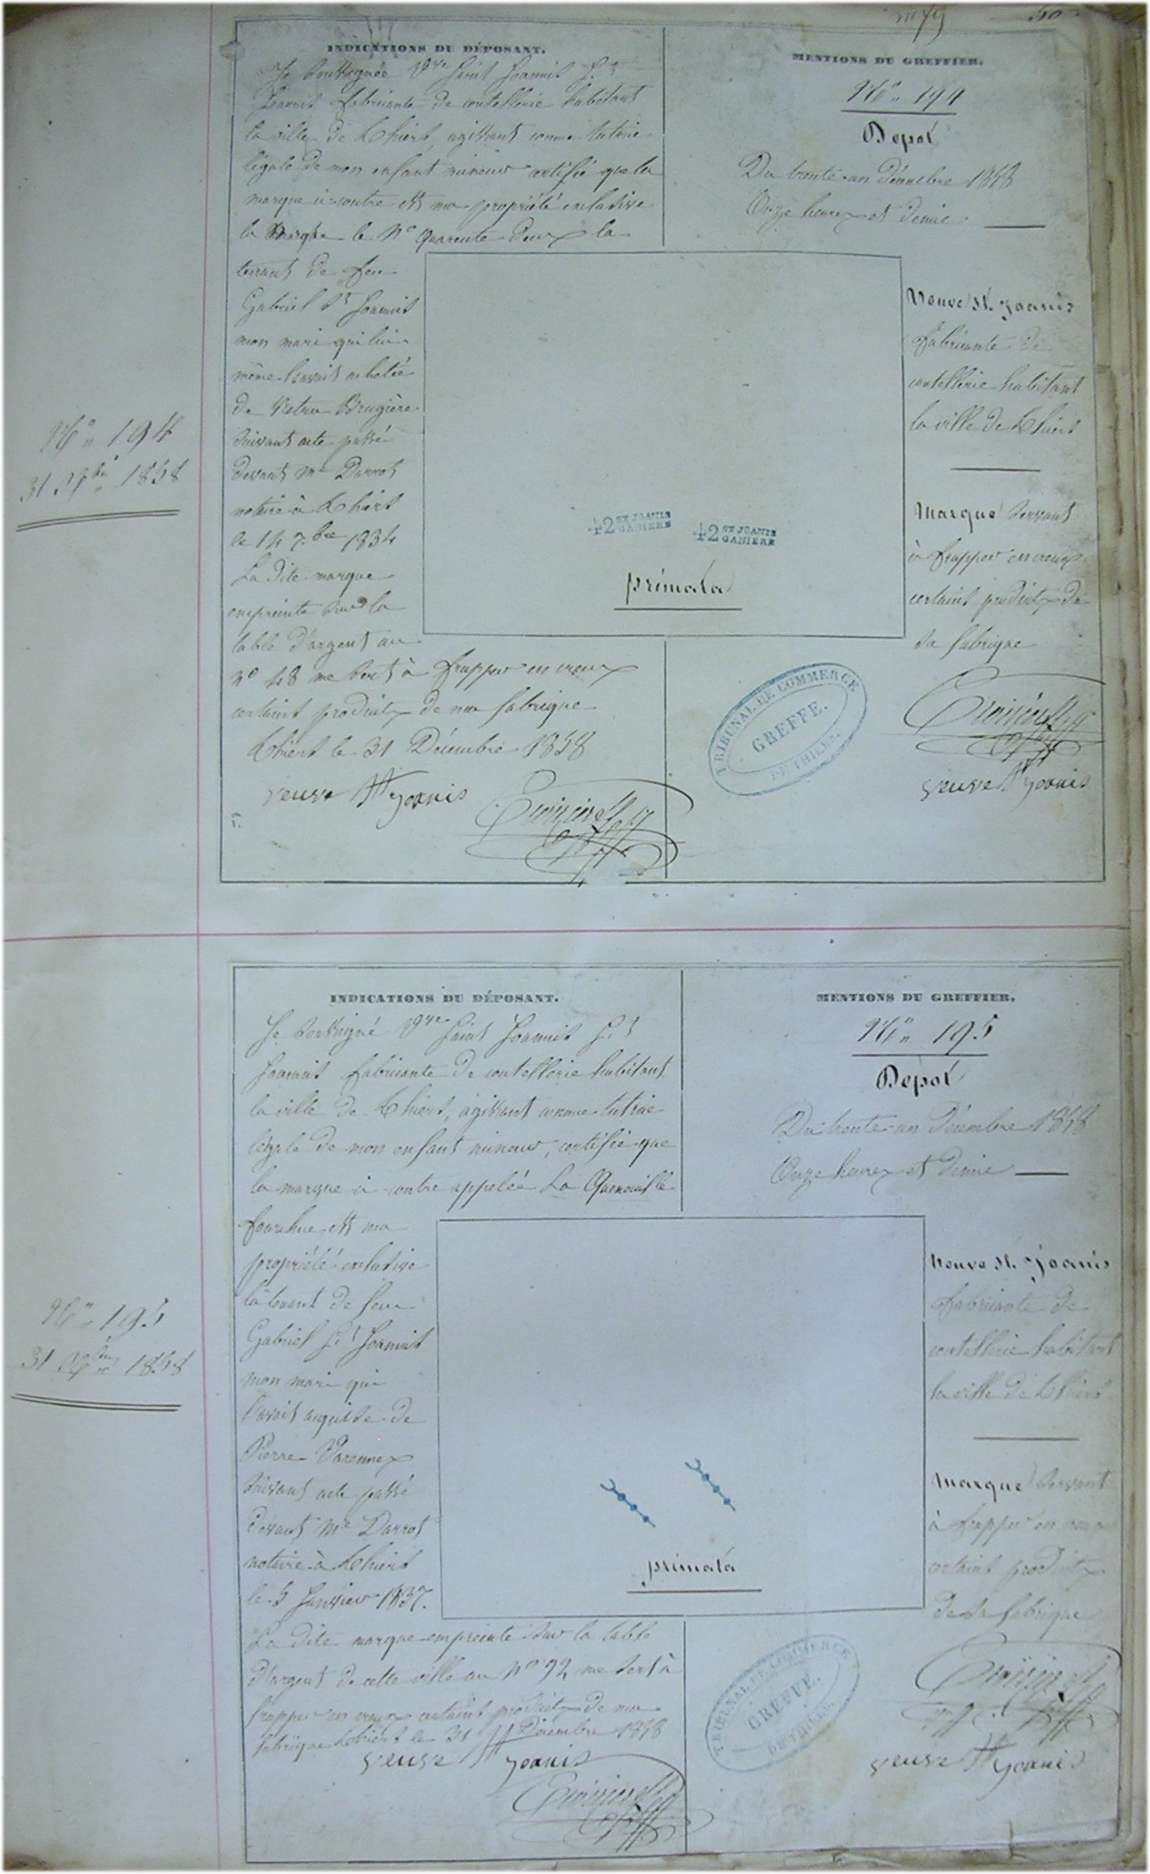 N° 194
31 Xbre 1858
INDICATIONS DU DÉPOSANT.
Je soussignée Vve Saint Joannis St
Joannis fabricante de coutellerie habitant
la ville de Thiers, agissant comme tutrice
légale de mon enfant mineur certifie que la
marque ci contre est ma propriété exclusive
la marque le N° quarante deux la
tenant de feu
Gabriel St Joannis
mon mari qui lui
même l'avait achetée
de Brugière
suivant acte passé
devant Me Darrot
notaire à Thiers
le 14 7.bre 1834
La dite marque
empreinte sur la
table d'argent au
n° 48 me sert à frapper en creux
certains produits de ma fabrique
Thiers le 31 Décembre 1858
veuve St Joanis
MENTIONS DU GREFFIER.
N° 194
Depot
Du trente un Décembre 1858
Onze heures et demie
42 ST JOANIS
GANIERE
42 ST JOANIS
GANIERE
primata
Veuve St. Joanis
fabricante de
coutellerie habitant
la ville de Thiers
Marque servant
à frapper en creux
certains produits de
sa fabrique
TRIBUNAL DE COMMERCE
GREFFE.
DE THIERS.
veuve St Joanis
N° 195
31 Xbre 1858
INDICATIONS DU DÉPOSANT.
Je soussigné Vve Saint Joannis St
Joannis fabricante de coutellerie habitant
la ville de Thiers, agissant comme tutrice
légale de mon enfant mineur, certifie que
la marque ci contre appelée La Quenouille
fourchue est ma
propriété exclusive
la tenant de feu
Gabriel St Joannis
mon mari qui
l'avait acquise de
Pierre Varennes
suivant acte passé
devant Me Darrot
notaire à Thiers
le 5 Janvier 1837.
La dite marque empreinte sur la table
d'argent de cette ville au N° 92 me sert à
frapper en creux certains produits de ma
fabrique Thiers le 31 Décembre 1858
veuve St Joanis
MENTIONS DU GREFFIER.
N° 195
Depot
Du trente un Décembre 1858
Onze heures et demie
primata
Veuve St. Joanis
fabricante de
coutellerie habitant
la ville de Thiers
Marque servant
à frapper en creux
certains produits
de sa fabrique
TRIBUNAL DE COMMERCE
GREFFE.
DE THIERS.
veuve St Joanis